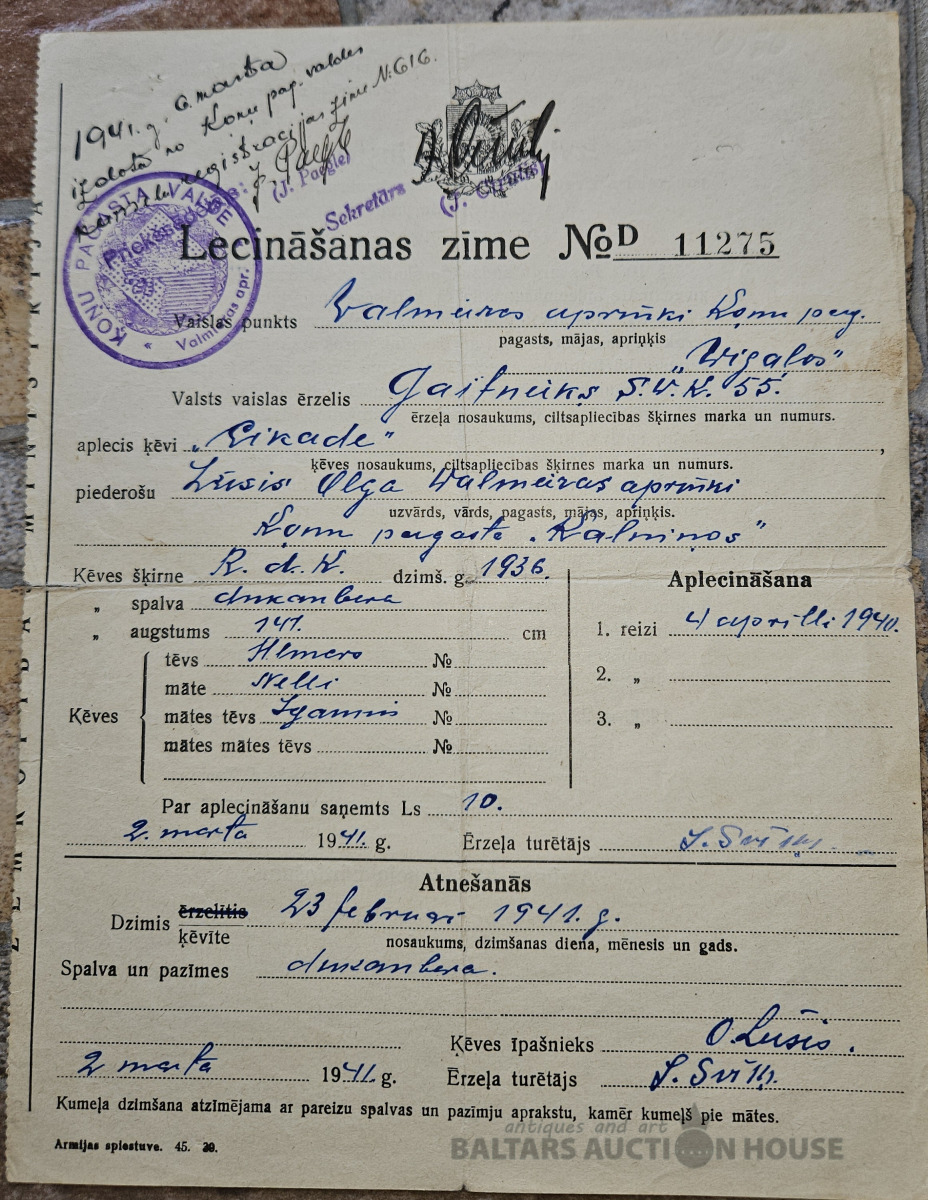 1941. g. 6. marta
izdota no Ķoņu pag. valdes
reģistrācijas zīme N: 616.
J. Paegle
Priekšsēdētājs: (J. Paegle)
Sekretārs
ĶOŅU PAGASTA VALDE
Valmieras apr.
Lecināšanas zīme №D 11275
Vaislas punkts Valmieras apriņķi Ķoņu pag.
pagasts, mājas, apriņķis
Valsts vaislas ērzelis S.V.K. 55.
ērzeļa nosaukums, ciltsapliecības šķirnes marka un numurs.
aplecis ķēvi „Eikade”,
ķēves nosaukums, ciltsapliecības šķirnes marka un numurs.
piederošu Lūsis Olga Valmieras apriņķi
uzvārds, vārds, pagasts, mājas, apriņķis.
Ķoņu pagasta „Kalniņos”
Ķēves šķirne R. d. K. dzimš. g. 1936.
„ spalva dukanbera
„ augstums 147. cm
Ķēves
tēvs Elmers №
māte Nelli №
mātes tēvs №
mātes mātes tēvs №
Aplecināšana
1. reizi 4 aprilli 1940.
2. „
3. „
Par aplecināšanu saņemts Ls 10.
2. marta 1941. g. Ērzeļa turētājs
Atnešanās
Dzimis ērzelītis 23 februari 1941. g.
ķēvīte
nosaukums, dzimšanas diena, mēnesis un gads.
Spalva un pazīmes dukanbera.
Ķēves īpašnieks O. Lūsis.
2 marta 1941. g. Ērzeļa turētājs
Kumeļa dzimšana atzīmējama ar pareizu spalvas un pazīmju aprakstu, kamēr kumeļš pie mātes.
Armijas spiestuve. 45. 39.
antiques and art
BALTARS AUCTION HOUSE